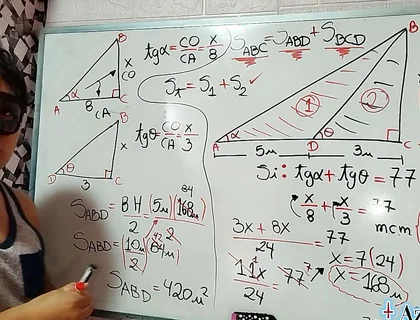 B
x
CO
A α 8 C
CA
tgα = CO/CA = x/8
S_ABC = S_ABD + S_BCD
S_T = S₁ + S₂ ✓
B
x
D θ 3 C
tgθ = CO/CA = x/3
B
1
2
A α D θ C
5m 3m
Si: tgα + tgθ = 77
x/8 + x/3 = 77
mcm
(3x + 8x)/24 = 77
11x/24 = 77 7
x = 7(24)
x = 168 m
S_ABD = BH/2 = (5m)(168m)/2
84
S_ABD = 420 m²